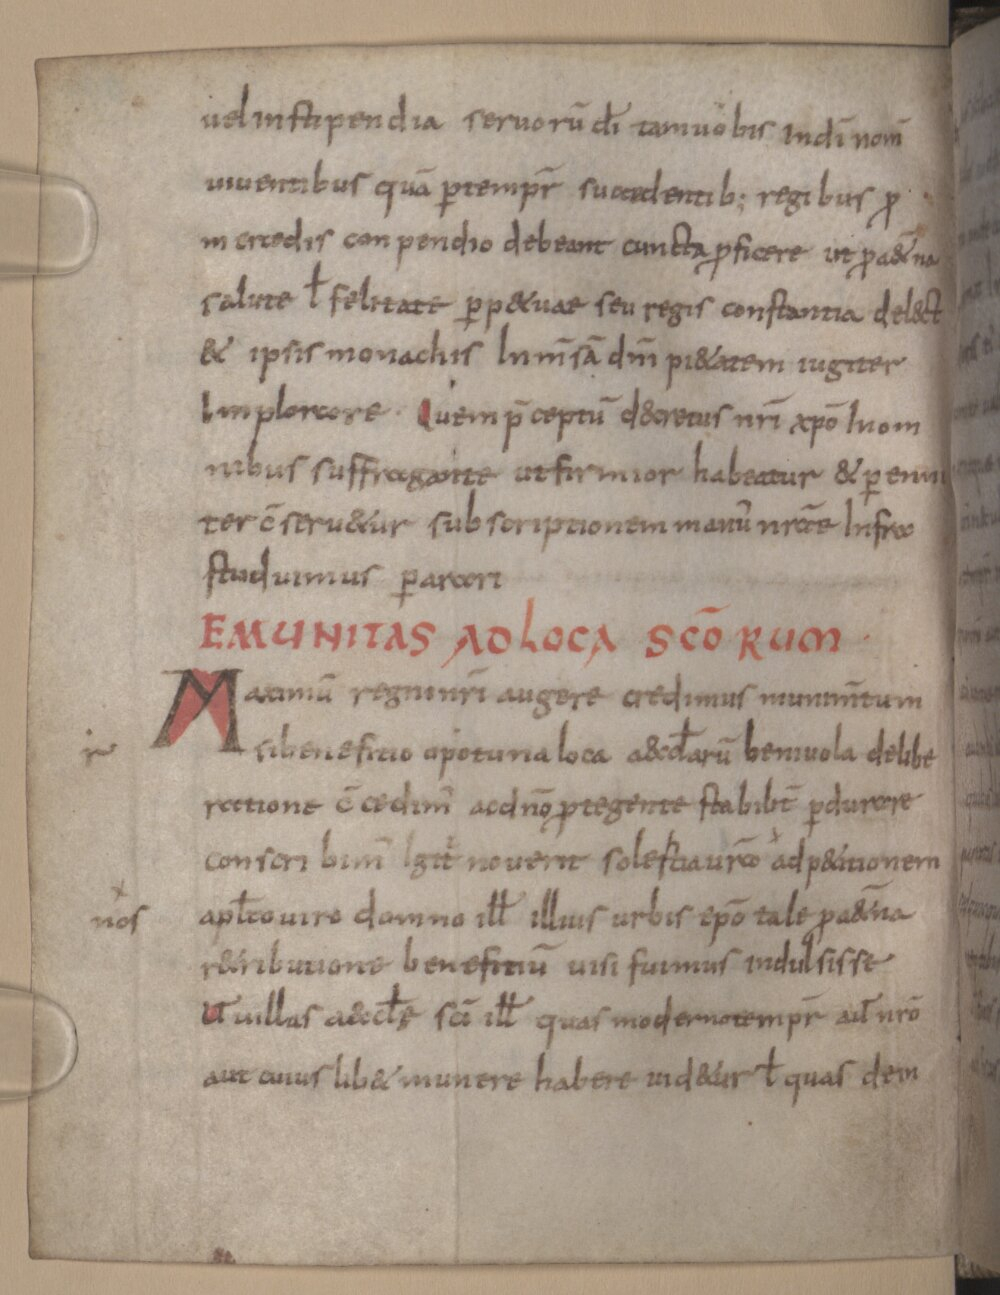 uel in stipendia seruorū dī tam uobis in dī nom̄
uiuentibus quā p̄ temp̄r succedentib; regibus ꝓ
mercedis conpendio debeant cuncta ꝓficere ut ꝓ a&̄na
salute ł felitate ꝑp&uae seu regis constantia delect
& ipsis monachis Inm̄sā dn̄i pi&atem iugiter
Implorare. Quem p̄ceptū decretus nr̄i xp̄o In om
nibus suffragante ut firmior habeatur & ꝑ enni
ter c̄seru&ur subscriptionem manū nrāe Infra
studuimus ꝑarari
EMUNITAS AD LOCA SCŌRUM
Maximū regni nr̄i augere credimus munim̄tum
r̄
si benefitio opotuna loca aecclarū beniuola delibe
ratione c̄cedim̄ ac dn̄o ꝓtegente stabilit̄ ꝑdurare
conscribim̄ Igit̄ nouerit solestia urā ad p&itionem
nos
aplco uiro domno ill illius urbis ep̄o tale ꝓ a&̄na
r&ributione benefitiū uisi fuimus indulsisse
Ut̄ uillas aeccle sc̄i ill quas moderno temp̄r aut nr̄o
aut cuius lib& munere habere uid&ur ł quas dein